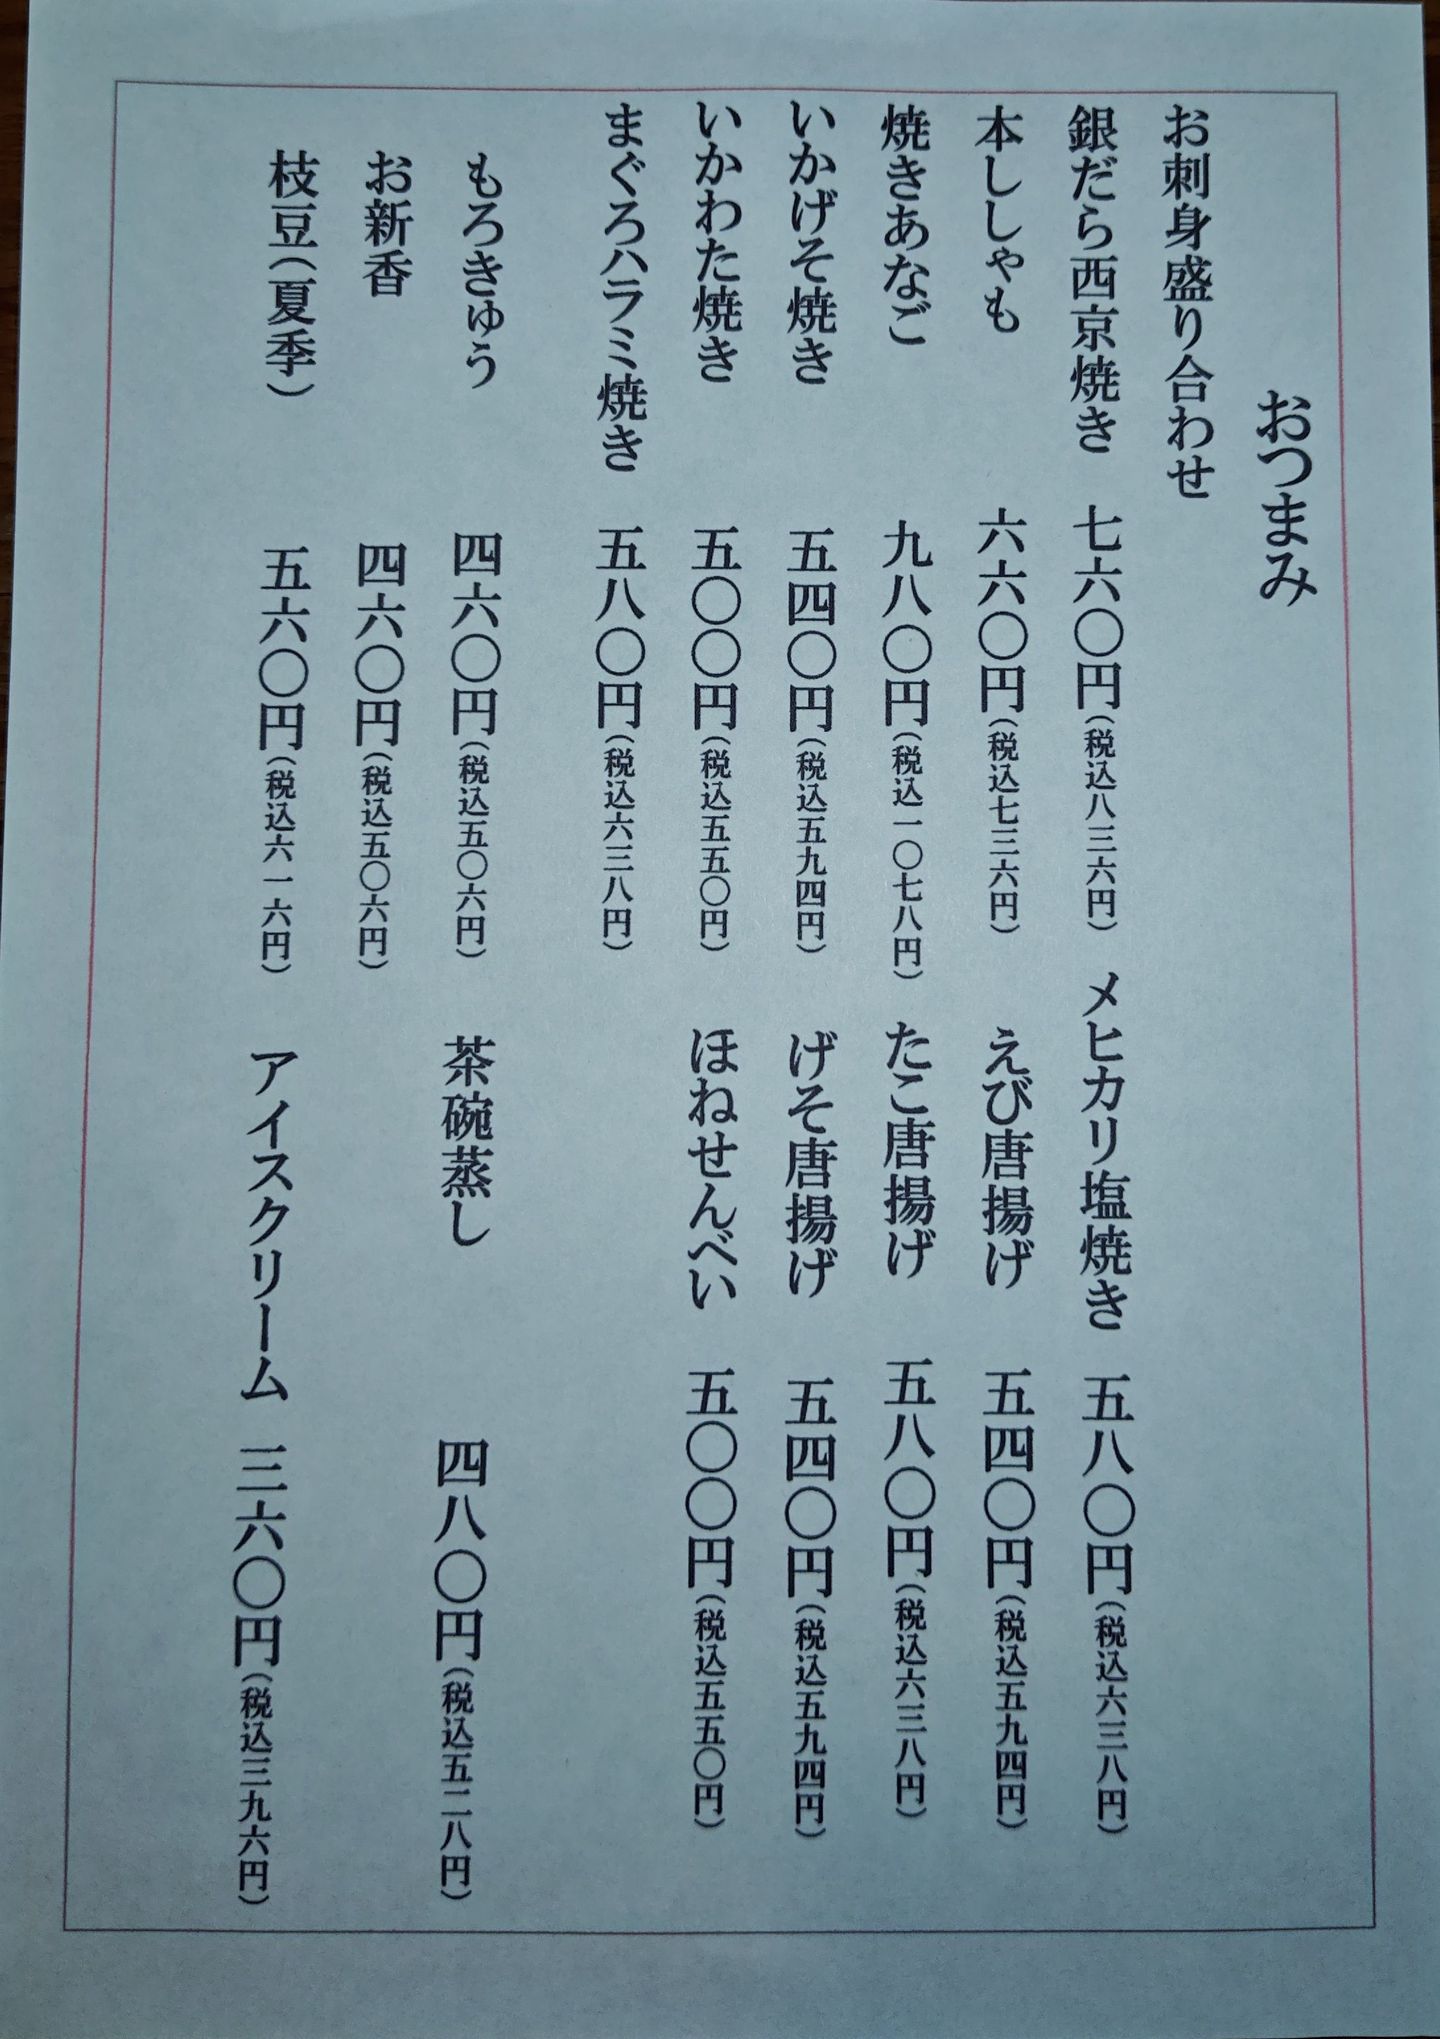 おつまみ
お刺身盛り合わせ
銀だら西京焼き 七六〇円(税込八三六円) メヒカリ塩焼き 五八〇円(税込六三八円)
本ししゃも 六六〇円(税込七二六円) えび唐揚げ 五四〇円(税込五九四円)
焼きあなご 九八〇円(税込一〇七八円) たこ唐揚げ 五八〇円(税込六三八円)
いかげそ焼き 五四〇円(税込五九四円) げそ唐揚げ 五四〇円(税込五九四円)
いかわた焼き 五〇〇円(税込五五〇円) ほねせんべい 五〇〇円(税込五五〇円)
まぐろハラミ焼き 五八〇円(税込六三八円)
もろきゅう 四六〇円(税込五〇六円) 茶碗蒸し 四八〇円(税込五二八円)
お新香 四六〇円(税込五〇六円)
枝豆(夏季) 五六〇円(税込六一六円) アイスクリーム 三六〇円(税込三九六円)